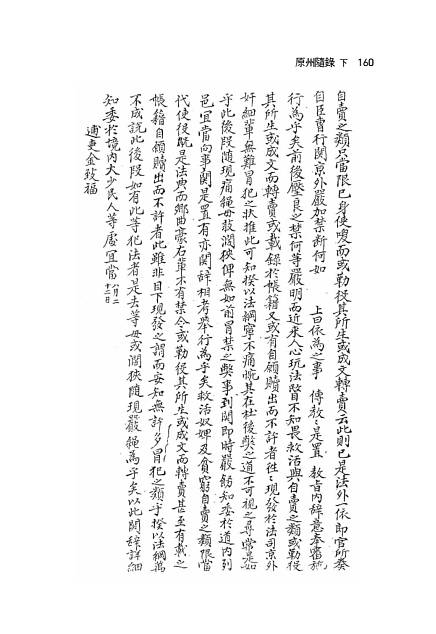 原州隨錄 下 160
自賣之類只當限己身使喚而或勒從其所生或成文轉賣云此則已是法外一依郎官所奏
自臣曹行關京外嚴加禁斷何如 上曰依爲之事 傳敎敎是置 敎旨內辭意奉審施
行爲乎矣前後壓良之禁何等嚴明而近來人心玩法皆不知畏救活與自賣之類或勒從
其所生或成文而轉賣或載錄於帳籍又或有自願贖出而不許者往往現發於法司京外
奸細輩無難冒犯之狀推此可知揆以法綱寧不痛惋其在杜後弊之道不可視之尋常是如
乎此後段隨現痛繩毋敢濶狹俾無如前冒禁之弊事到關卽時嚴飭知委於道內列
邑宜當向事關是置有亦關辭相考擧行爲乎矣救活奴婢及貧窮自賣之類限當
代使役旣是法典而鄕曲豪右輩不有禁令或勒從其所生或成文而轉賣甚至有載之
帳籍自願贖出而不許者此雖非目下現發之謂而安知無許多冒犯之類乎揆以法綱萬
不成說此後段如有此等犯法者是去等毋或濶狹隨現嚴繩爲乎矣以此關辭詳細
知委於境內大少民人等處宜當 八月二十二日
逋吏金致福